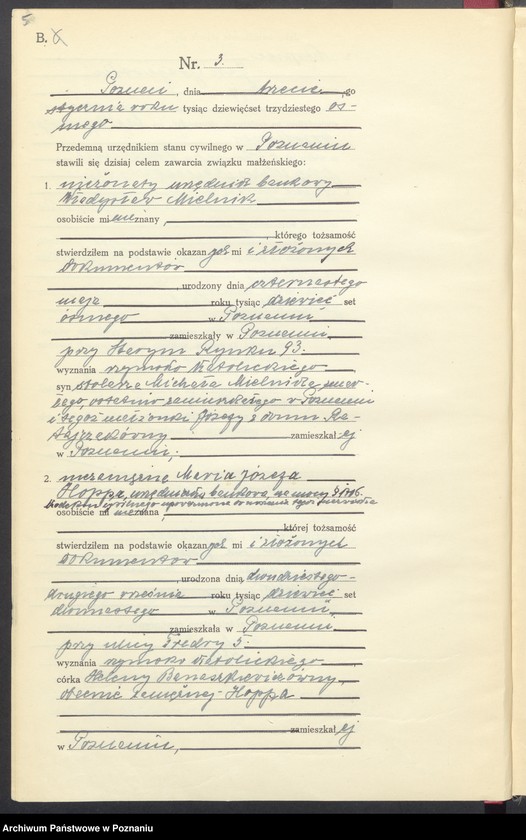 5
B.
Nr. 3.
Poznań, dnia trzeciego
stycznia roku tysiąc dziewięćset trzydziestego ós-
mego
Przedemną urzędnikiem stanu cywilnego w Poznaniu
stawili się dzisiaj celem zawarcia związku małżeńskiego:
1. nieżonaty urzędnik bankowy
Władysław Mielnik
osobiście mi nieznany,
, którego tożsamość
stwierdziłem na podstawie okazanych mi i złożonych
dokumentów
, urodzony dnia czternastego
maja roku tysiąc dziewięć set
ósmego w Poznaniu
zamieszkały w Poznaniu
przy Starym Rynku 93.
wyznania rzymsko katolickiego
syn stolarza Michała Mielnika, zmar-
łego, ostatnio zamieszkałego w Poznaniu
i tegoż małżonki Józefy z domu Ra-
zamieszkałej
w Poznaniu;
2. niezamężna Maria Józefa
Hoppa, urzędniczka bankowa, na mocy
osobiście mi nieznana,
, której tożsamość
stwierdziłem na podstawie okazanych mi i złożonych
dokumentów
, urodzona dnia dwudziestego-
drugiego września roku tysiąc dziewięć set
dwunastego w Poznaniu
zamieszkała w Poznaniu
przy ulicy Fredry 5.
wyznania rzymsko katolickiego
córka Heleny Banaszkiewiczówny,
obecnie zamężnej Hoppa
zamieszkałej
w Poznaniu,
Archiwum Państwowe w Poznaniu